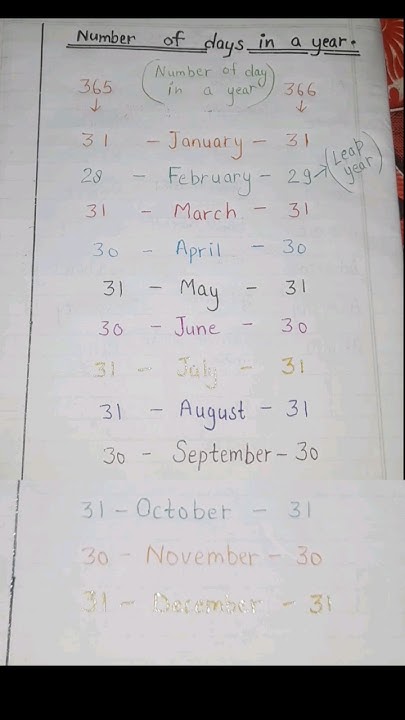 Number of days in a year.
(Number of day
in a year)
365 366
↓ ↓
31 - January - 31
28 - February - 29 → (Leap year)
31 - March - 31
30 - April - 30
31 - May - 31
30 - June - 30
31 - July - 31
31 - August - 31
30 - September - 30
31 - October - 31
30 - November - 30
31 - December - 31